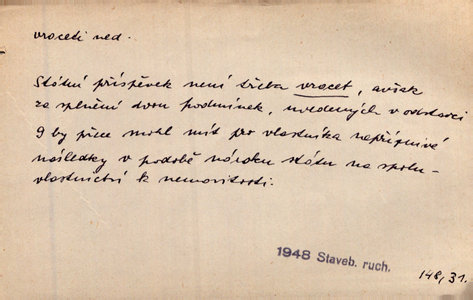 vraceti ned.
Státní příspěvek není třeba vracet, avšak
za splnění dvou podmínek, uvedených v odstavci
9 by přece mohl mít pro vlastníka nepříznivé
následky v podobě nároku státu na spolu-
vlastnictví k nemovitosti.
1948 Staveb. ruch.
148/31.